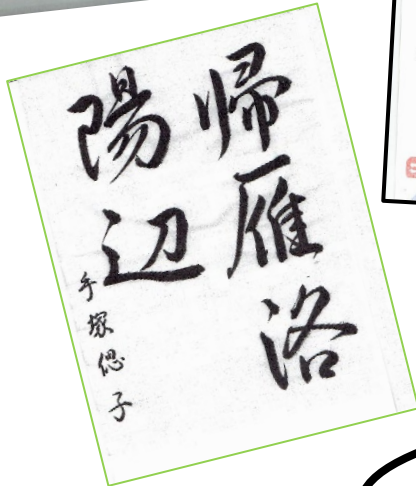 帰雁洛
陽辺
手塚偲子